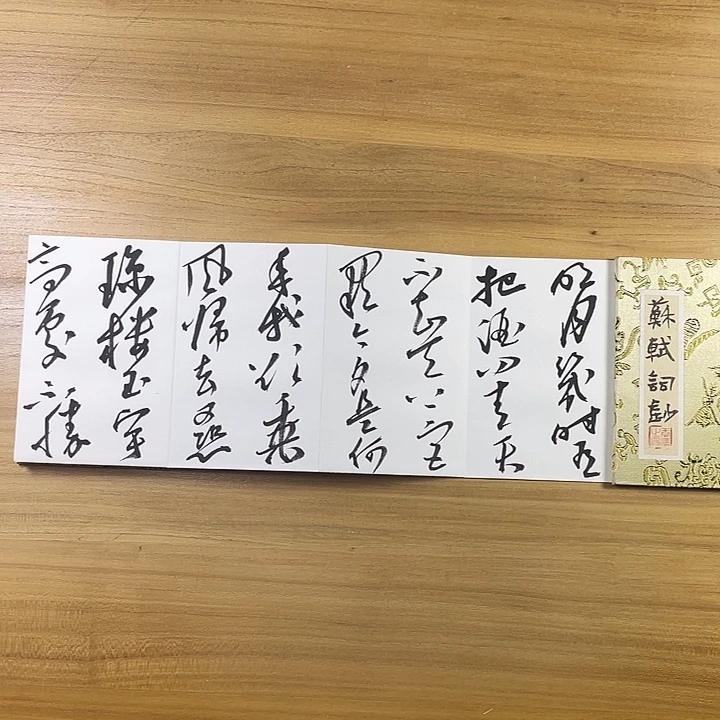 蘇軾詞鈔
明月幾時有
把酒問青天
不知天上宮
闕今夕是何
年我欲乘
風歸去又恐
瓊樓玉宇
高處不勝